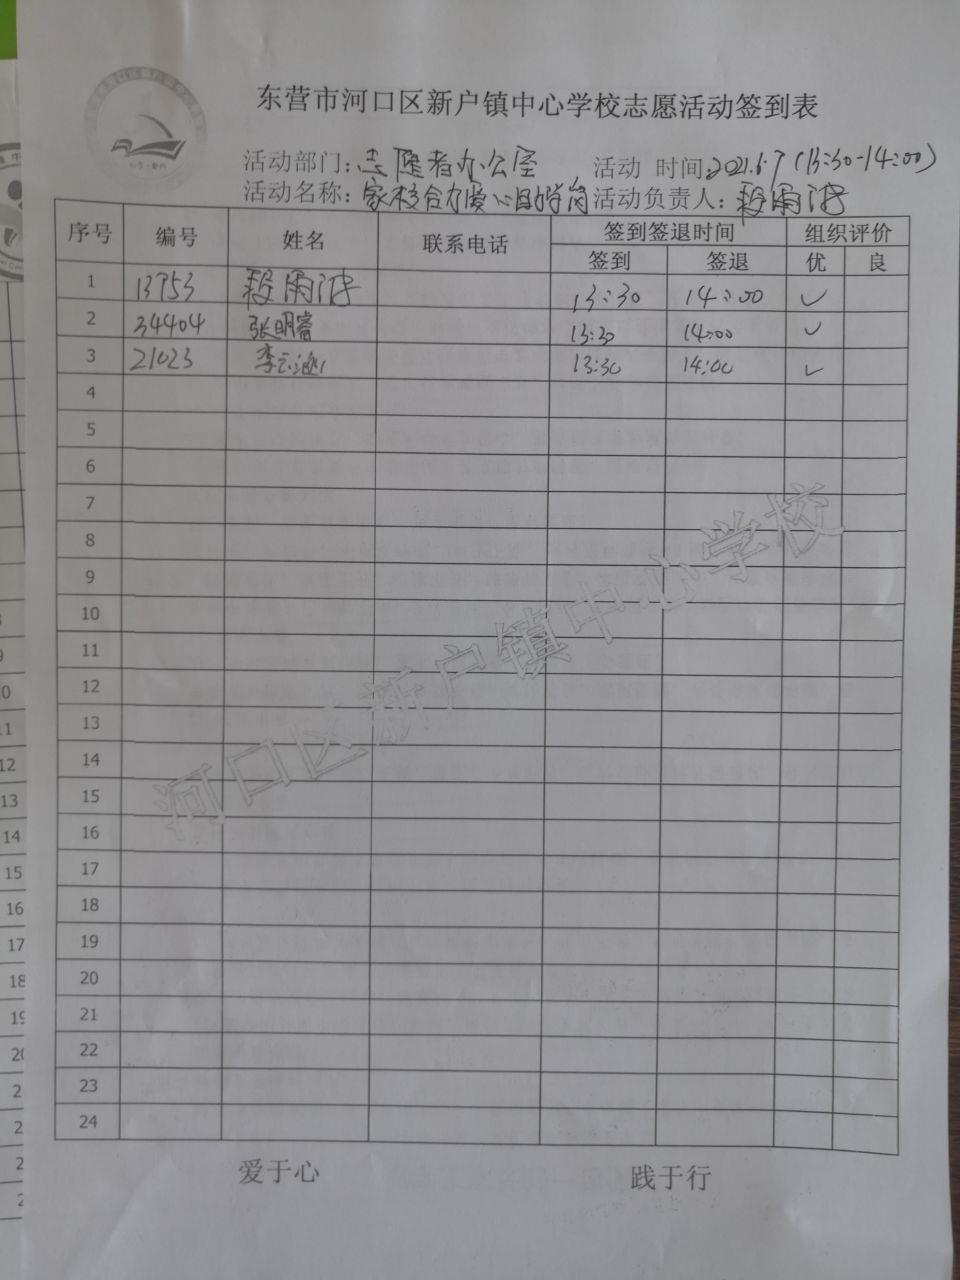 东营市河口区新户镇中心学校志愿活动签到表
活动部门:志愿者办公室 活动 时间:2021.6.7(13:30-14:00)
活动名称:家校合力爱心助学岗 活动负责人:段雨
序号 编号 姓名 联系电话 签到签退时间 组织评价
签到 签退 优 良
1 13953 段雨 13:30 14:00 ✓
2 34404 张明睿 13:30 14:00 ✓
3 21023 李云 13:30 14:00 ✓
4
5
6
7
8
9
10
11
12
13
14
15
16
17
18
19
20
21
22
23
24
河口区新户镇中心学校
爱于心 践于行